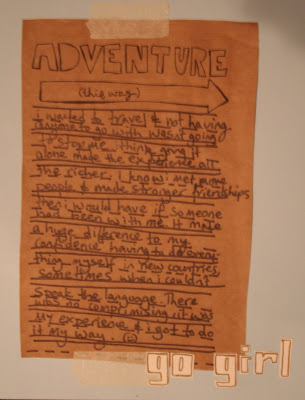 ADVENTURE
(this way)
i wanted to travel & not having
anyone to go with wasn't going
to stop me. think going it
alone made the experience all
the richer. I know i met more
people & made stronger friendships
then i would have if someone
had been with me. It made
a huge diference to my
confidence having to do every-
thing myself in new countries,
sometimes when i couldn't
speak the language. There
was no comprimising it was
My experience & i got to do
it My way.
go girl